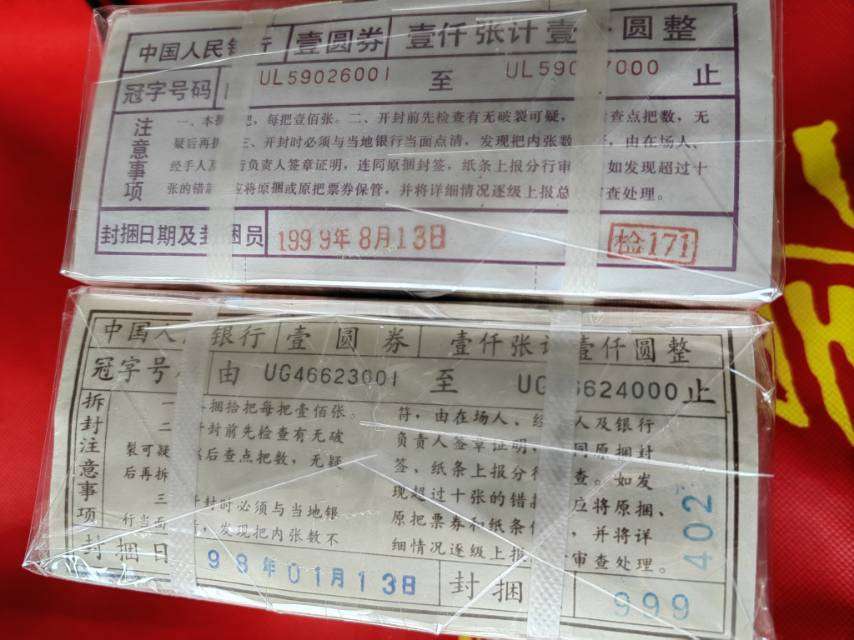 中国人民银行 壹圆券 壹仟张计壹 圆整
冠字号码 UL59026001 至 UL590 7000 止
注意事项
一、本捆 把,每把壹佰张。二、开封前先检查有无破裂可疑, 查点把数,无
疑后再拆 三、开封时必须与当地银行当面点清,发现把内张数 ,由在场人、
经手人及 行负责人签章证明,连同原捆封签,纸条上报分行审 如发现超过十
张的错 应将原捆或原把票券保管,并将详细情况逐级上报总 审查处理。
封捆日期及封捆员 1999年8月13日 检171
中国人 银行 壹圆券 壹仟张计壹仟圆整
冠字号 由 UG46623001 至 UG 6624000 止
拆封注意事项
一 捆拾把每把壹佰张。
二 封前先检查有无破
裂可疑 后查点把数,无疑
后再拆
三 封时必须与当地银
行当面 ,发现把内张数不
符,由在场人、经 人及银行
负责人签章证明, 同原捆封
签、纸条上报分行 查。如发
现超过十张的错 应将原捆、
原把票券和纸条 ,并将详
细情况逐级上报 审查处理。
封捆日 98年01月13日 封捆 999
402